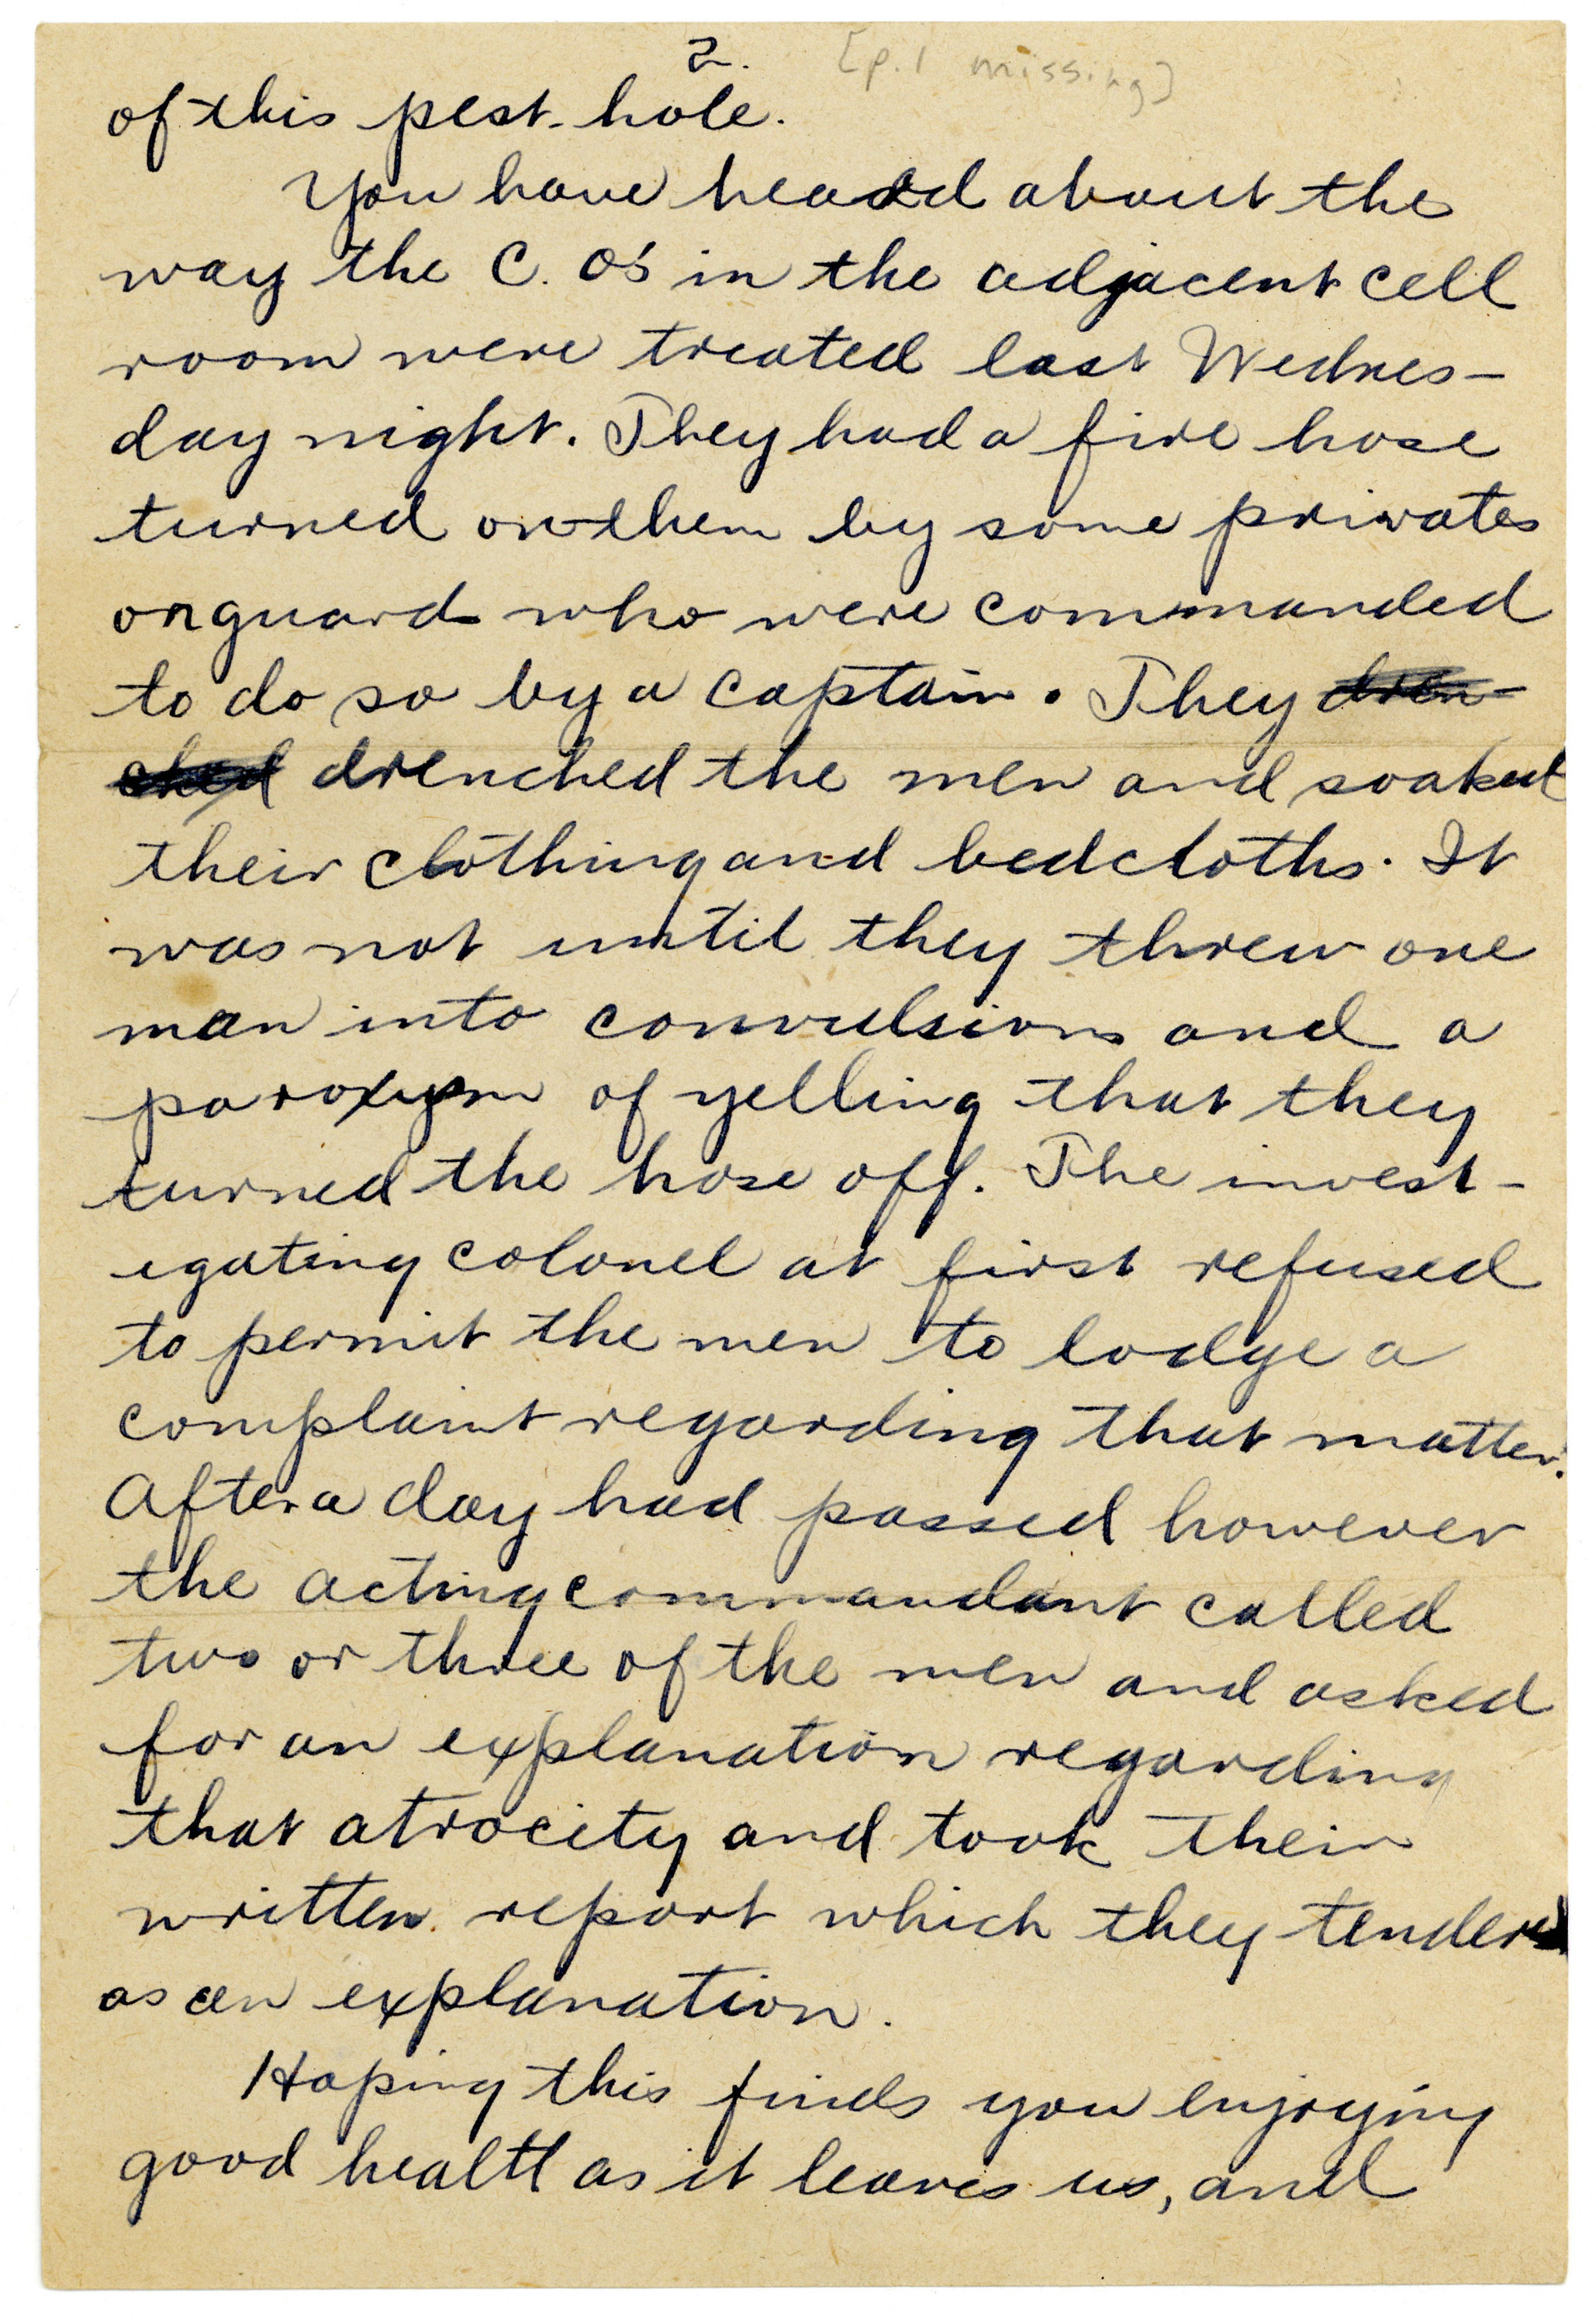 2. [p. 1 missing]
of this pest-hole.
You have heard about the
way the C. O's in the adjacent cell
room were treated last Wednes-
day night. They had a fire hose
turned on them by some privates
on guard who were commanded
to do so by a captain. They dren-
ched drenched the men and soaked
their clothing and bedcloths. It
was not until they threw one
man into convulsions and a
paroxysm of yelling that they
turned the hose off. The invest-
igating colonel at first refused
to permit the men to lodge a
complaint regarding that matter.
After a day had passed however
the acting commandant called
two or three of the men and asked
for an explanation regarding
that atrocity and took their
written report which they tendered
as an explanation.
Hoping this finds you enjoying
good health as it leaves us, and